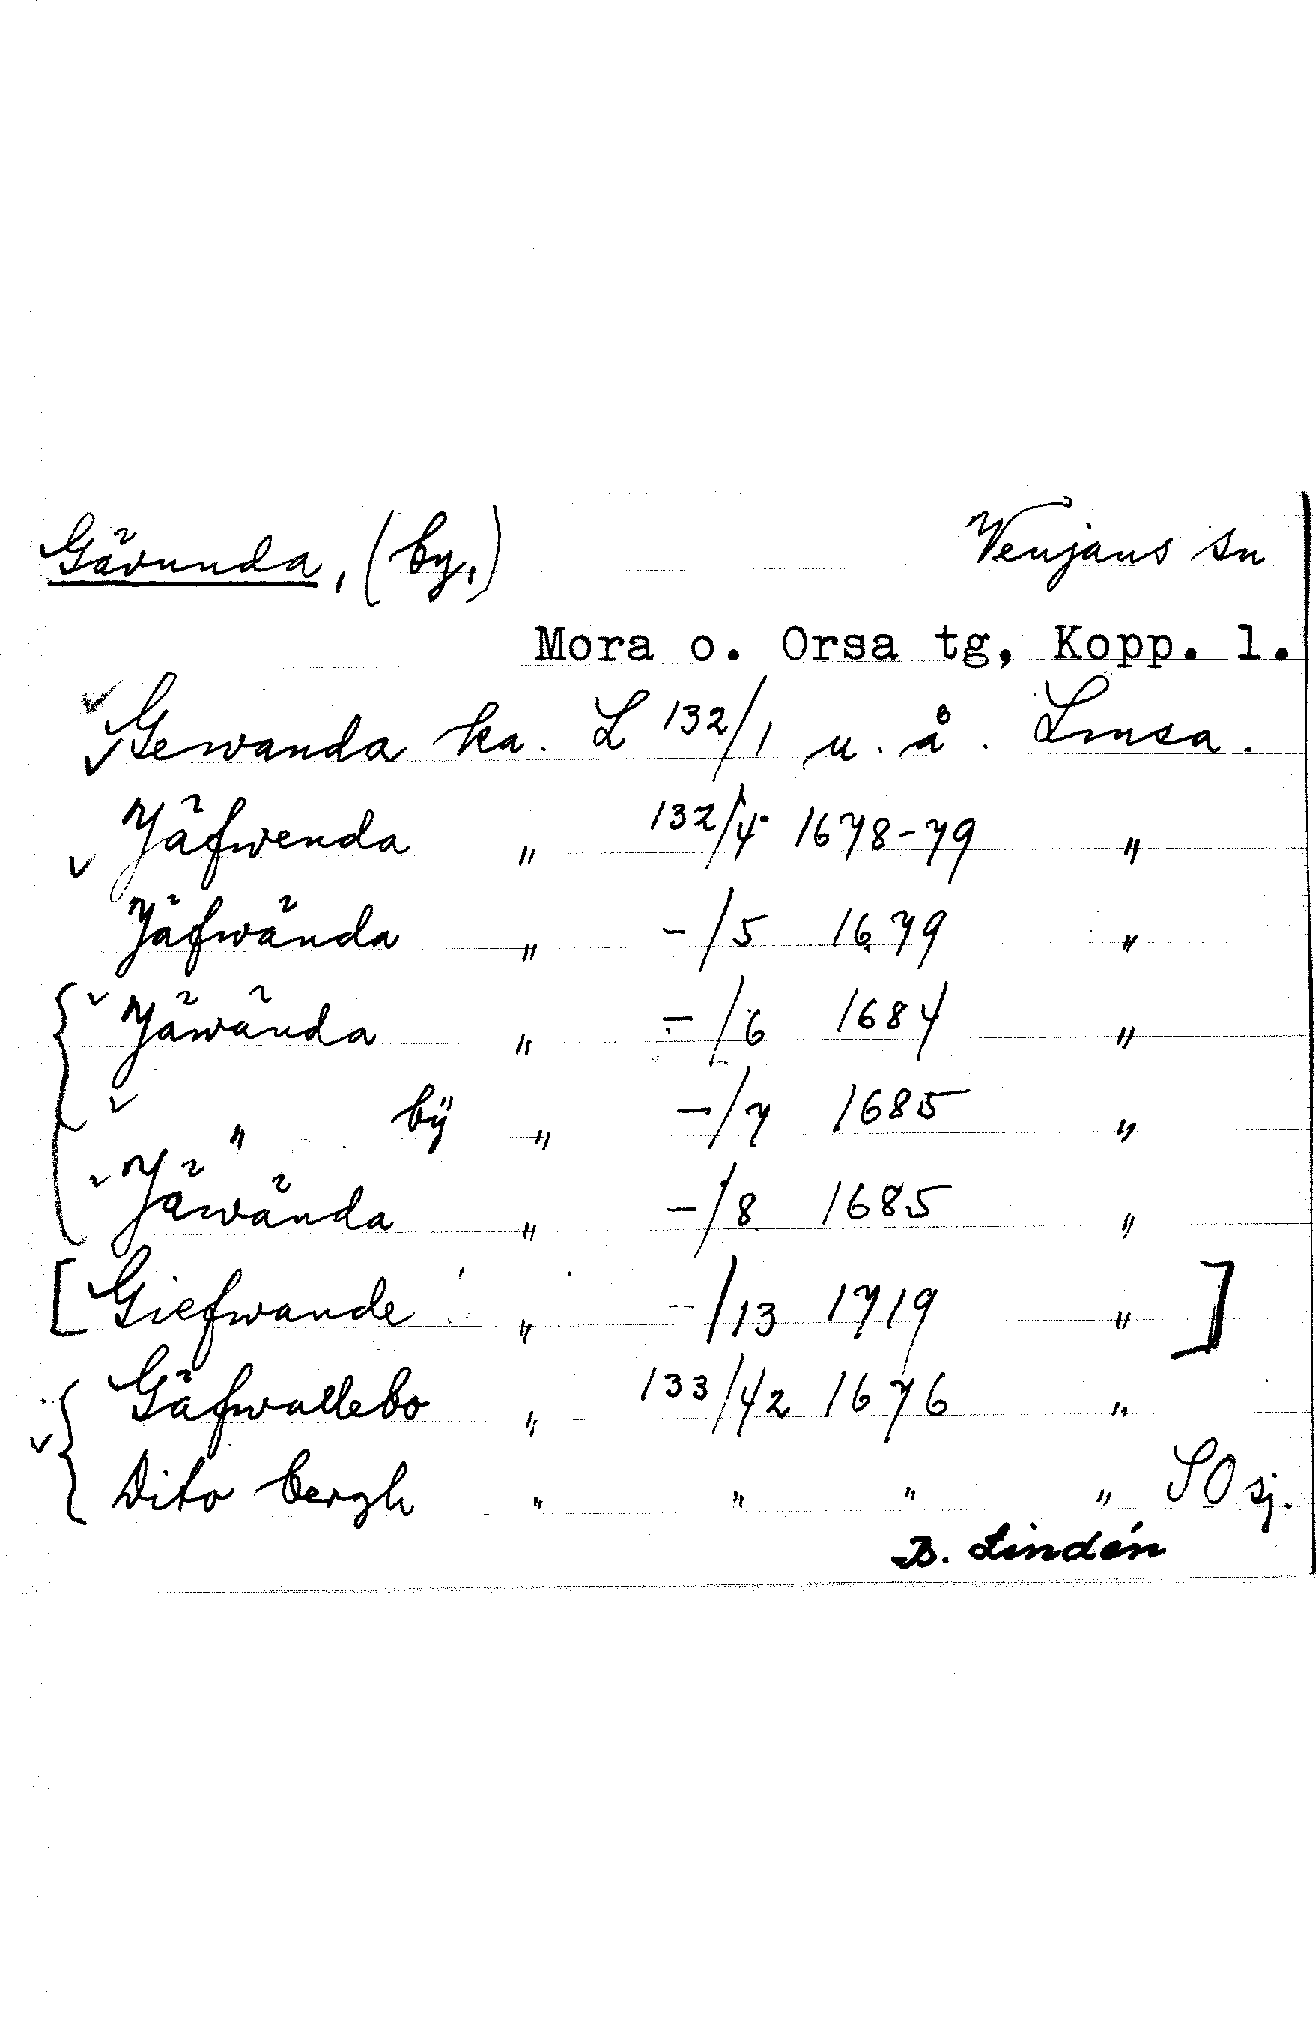 Gävunda, (by,) Venjans sn
Mora o. Orsa tg, Kopp. l.
Gewanda ka. L 132/1 u. å. Lmsa.
Jäfwenda " 132/4 1678-79 "
Jäfwända " -/5 1679 "
{ Jäwända " -/6 1684 "
" bÿ " -/7 1685 "
Jäwända " -/8 1685 "
[ Giefwande " -/13 1719 " ]
{ Gäfwallebo " 133/42 1676 "
Dito bergh " " " " SO sj.
B. Lindén